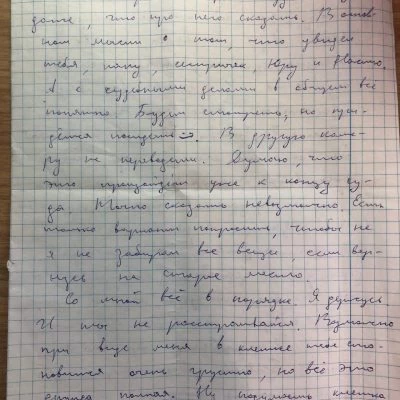 даже, что про него сказать. В основ-
ном мысли о том, что увидел
тебя, папу, сестричек, Юру и Настю.
А с судебными делами в общем всё
понятно. Будем смотреть, но при-
дётся потерпеть :). В другую каме-
ру не переводили. Думаю, что
это произойдёт уже к концу су-
да. Точно сказать невозможно. Есть
только вариант попросить, чтобы не
я не забирал все вещи, если вер-
нусь на старое место.
Со мной всё в порядке. Я держусь
И ты не расстраивайся. Возможно
при виде меня в клетке тебе ста-
новится очень грустно, но всё это
клетка